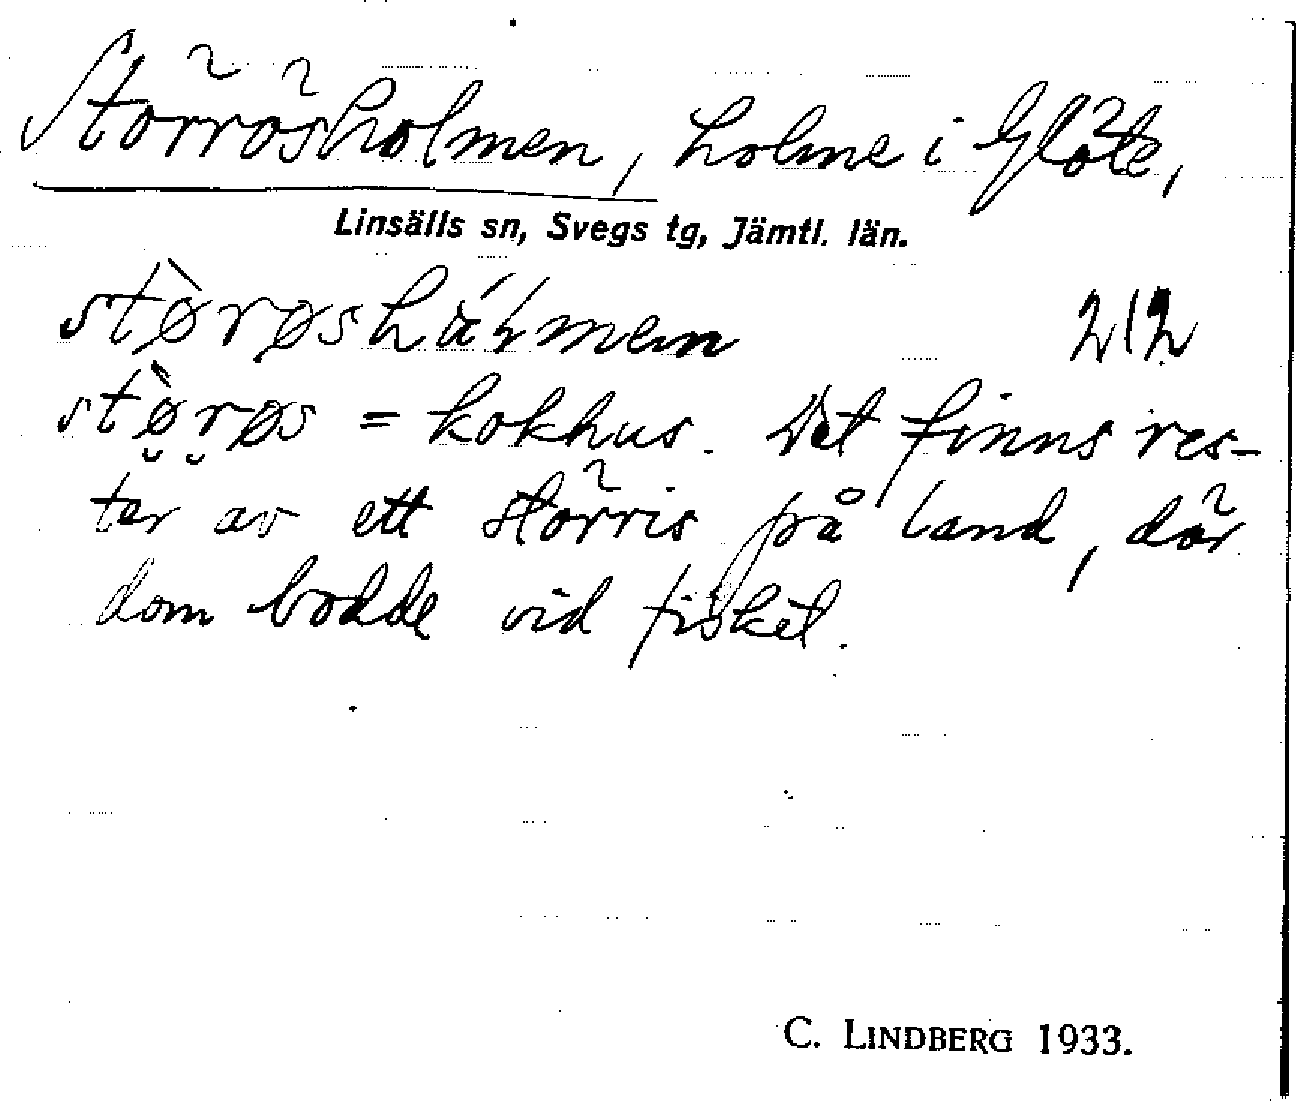 Störrösholmen, holme i Glöte,
Linsälls sn, Svegs tg, Jämtl. län.
stø̀røshɑ́ɫmen 212
stø̀røs = kokhus. Det finns res-
ter av ett störris på land, där
dom bodde vid fisket.
C. LINDBERG 1933.